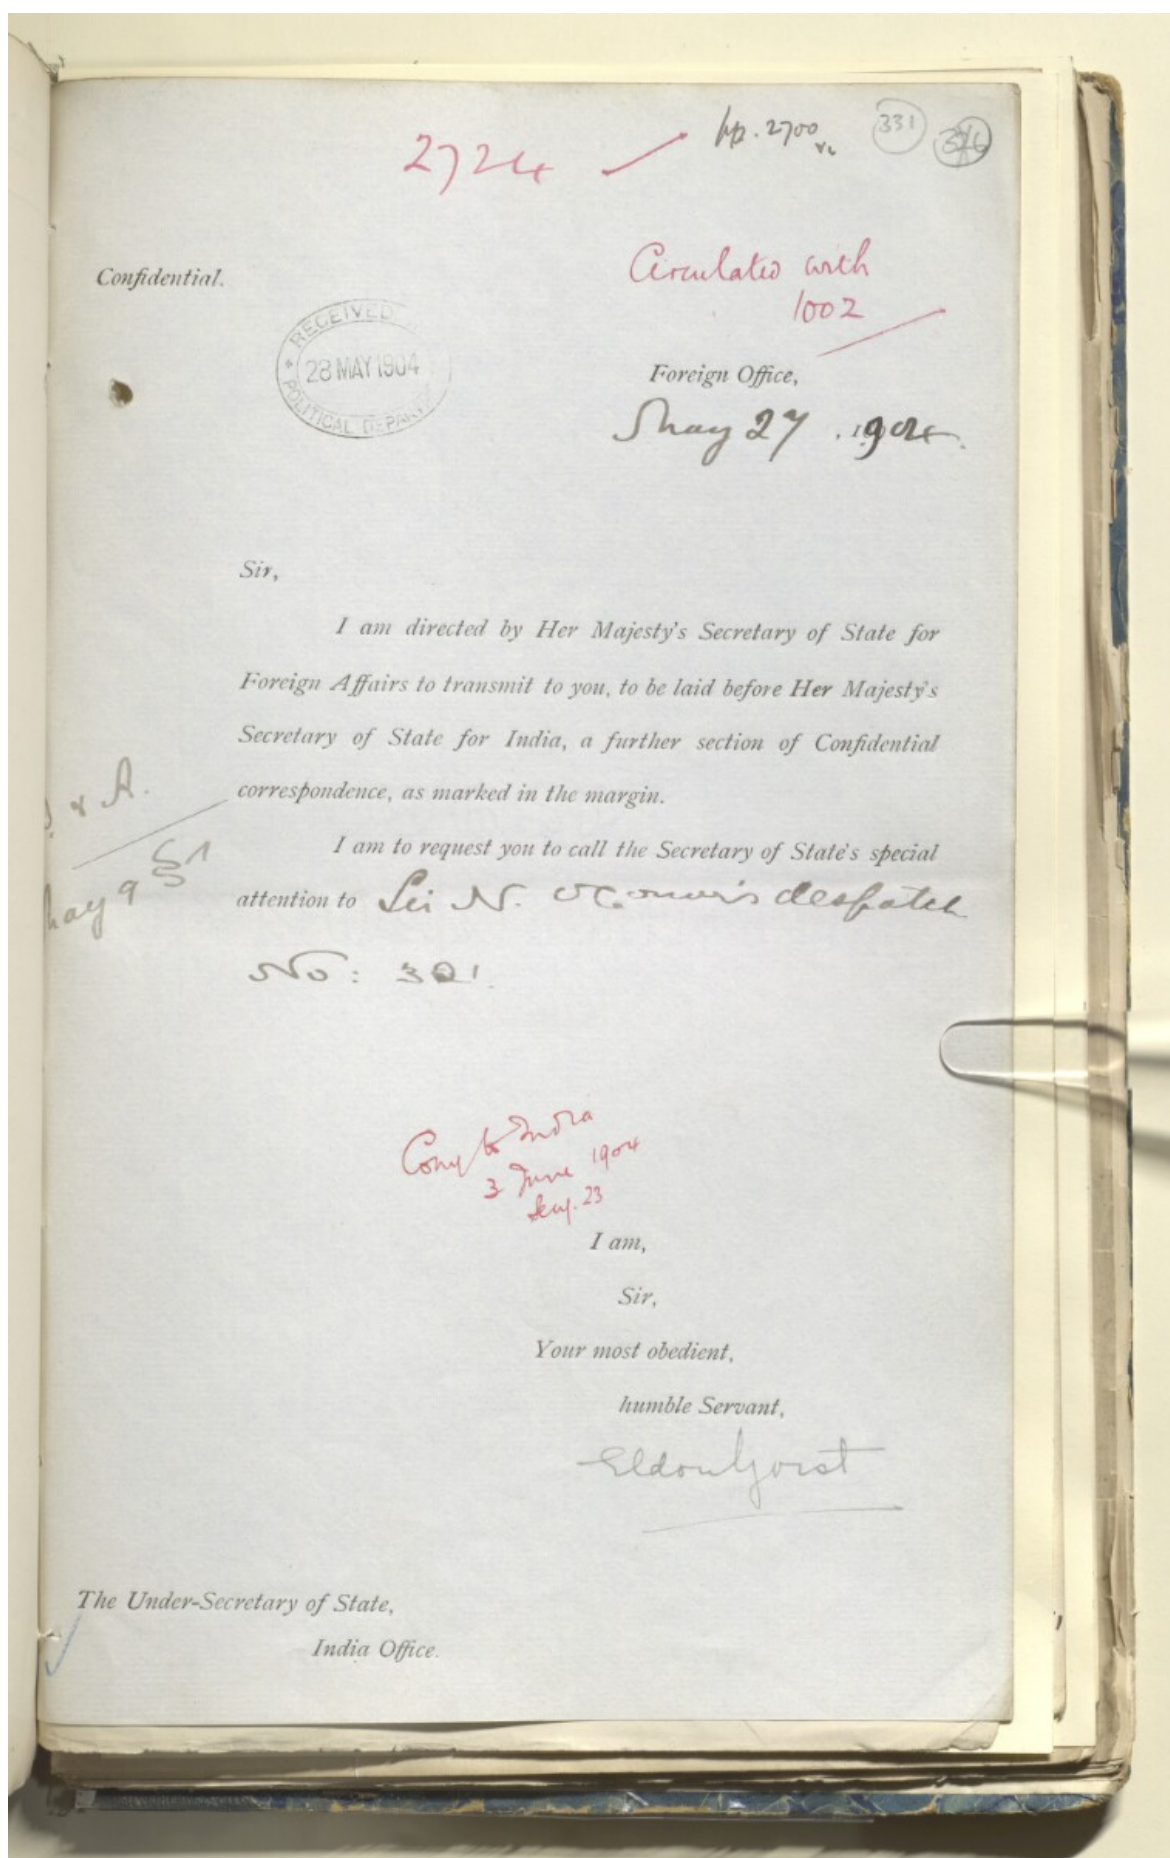 2724
pp. 2700
331
Confidential.
Circulated with
1002
RECEIVED
28 MAY 1904
POLITICAL DEPART
Foreign Office,
May 27 . 1904.
Sir,
I am directed by Her Majesty's Secretary of State for
Foreign Affairs to transmit to you, to be laid before Her Majesty's
Secretary of State for India, a further section of Confidential
correspondence, as marked in the margin.
& A.
May 9
I am to request you to call the Secretary of State's special
attention to Sir N. O'Conor's despatch
No: 301.
Copy to India
3 June 1904
Secy. 23
I am,
Sir,
Your most obedient,
humble Servant,
Eldon Gorst
The Under-Secretary of State,
India Office.